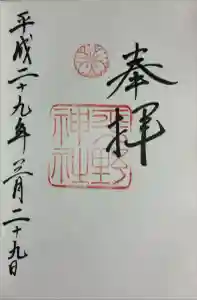 奉拝
野
神社
平成二十九年三月二十九日